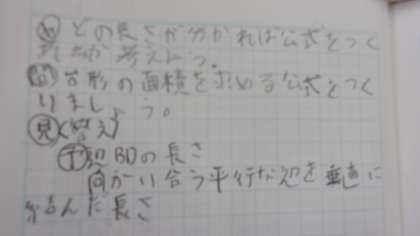 どの長さが分かれば公式をつく
れるか考えよう。
問 台形の面積を求める公式をつく
りましょう。
見 (答え)
予 辺BDの長さ
向かい合う平行な辺を垂直に
むすんだ長さ